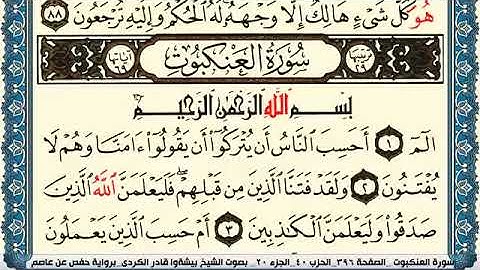 هُوَ كُلُّ شَىْءٍ هَالِكٌ إِلَّا وَجْهَهُۥ لَهُ ٱلْحُكْمُ وَإِلَيْهِ تُرْجَعُونَ ٨٨
سُورَةُ الْعَنْكَبُوتِ
بِسْمِ ٱللَّهِ ٱلرَّحْمَٰنِ ٱلرَّحِيمِ
الٓمٓ ١ أَحَسِبَ ٱلنَّاسُ أَن يُتْرَكُوٓا۟ أَن يَقُولُوٓا۟ ءَامَنَّا وَهُمْ لَا
يُفْتَنُونَ ٢ وَلَقَدْ فَتَنَّا ٱلَّذِينَ مِن قَبْلِهِمْ ۖ فَلَيَعْلَمَنَّ ٱللَّهُ ٱلَّذِينَ
صَدَقُوا۟ وَلَيَعْلَمَنَّ ٱلْكَٰذِبِينَ ٣ أَمْ حَسِبَ ٱلَّذِينَ يَعْمَلُونَ
سورة العنكبوت _ الصفحة ٣٩٦_ الحزب ٤٠_ الجزء ٢٠ _ بصوت الشيخ بيشةوا قادر الكردى_ برواية حفص عن عاصم